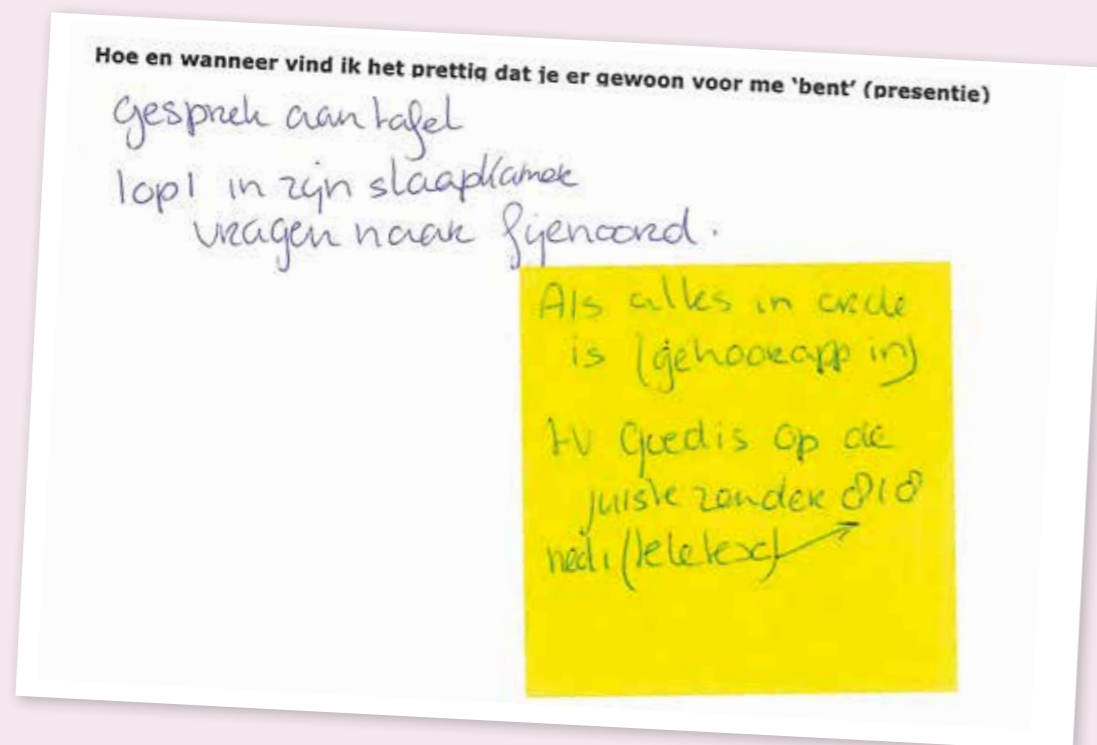 Hoe en wanneer vind ik het prettig dat je er gewoon voor me ‘bent’ (presentie)
gesprek aan tafel
1op1 in zijn slaapkamer
vragen naar fijenoord.
Als alles in orde
is (gehoorapp in)
tv goed is op de
juiste zender 818
ned1 (teletext)